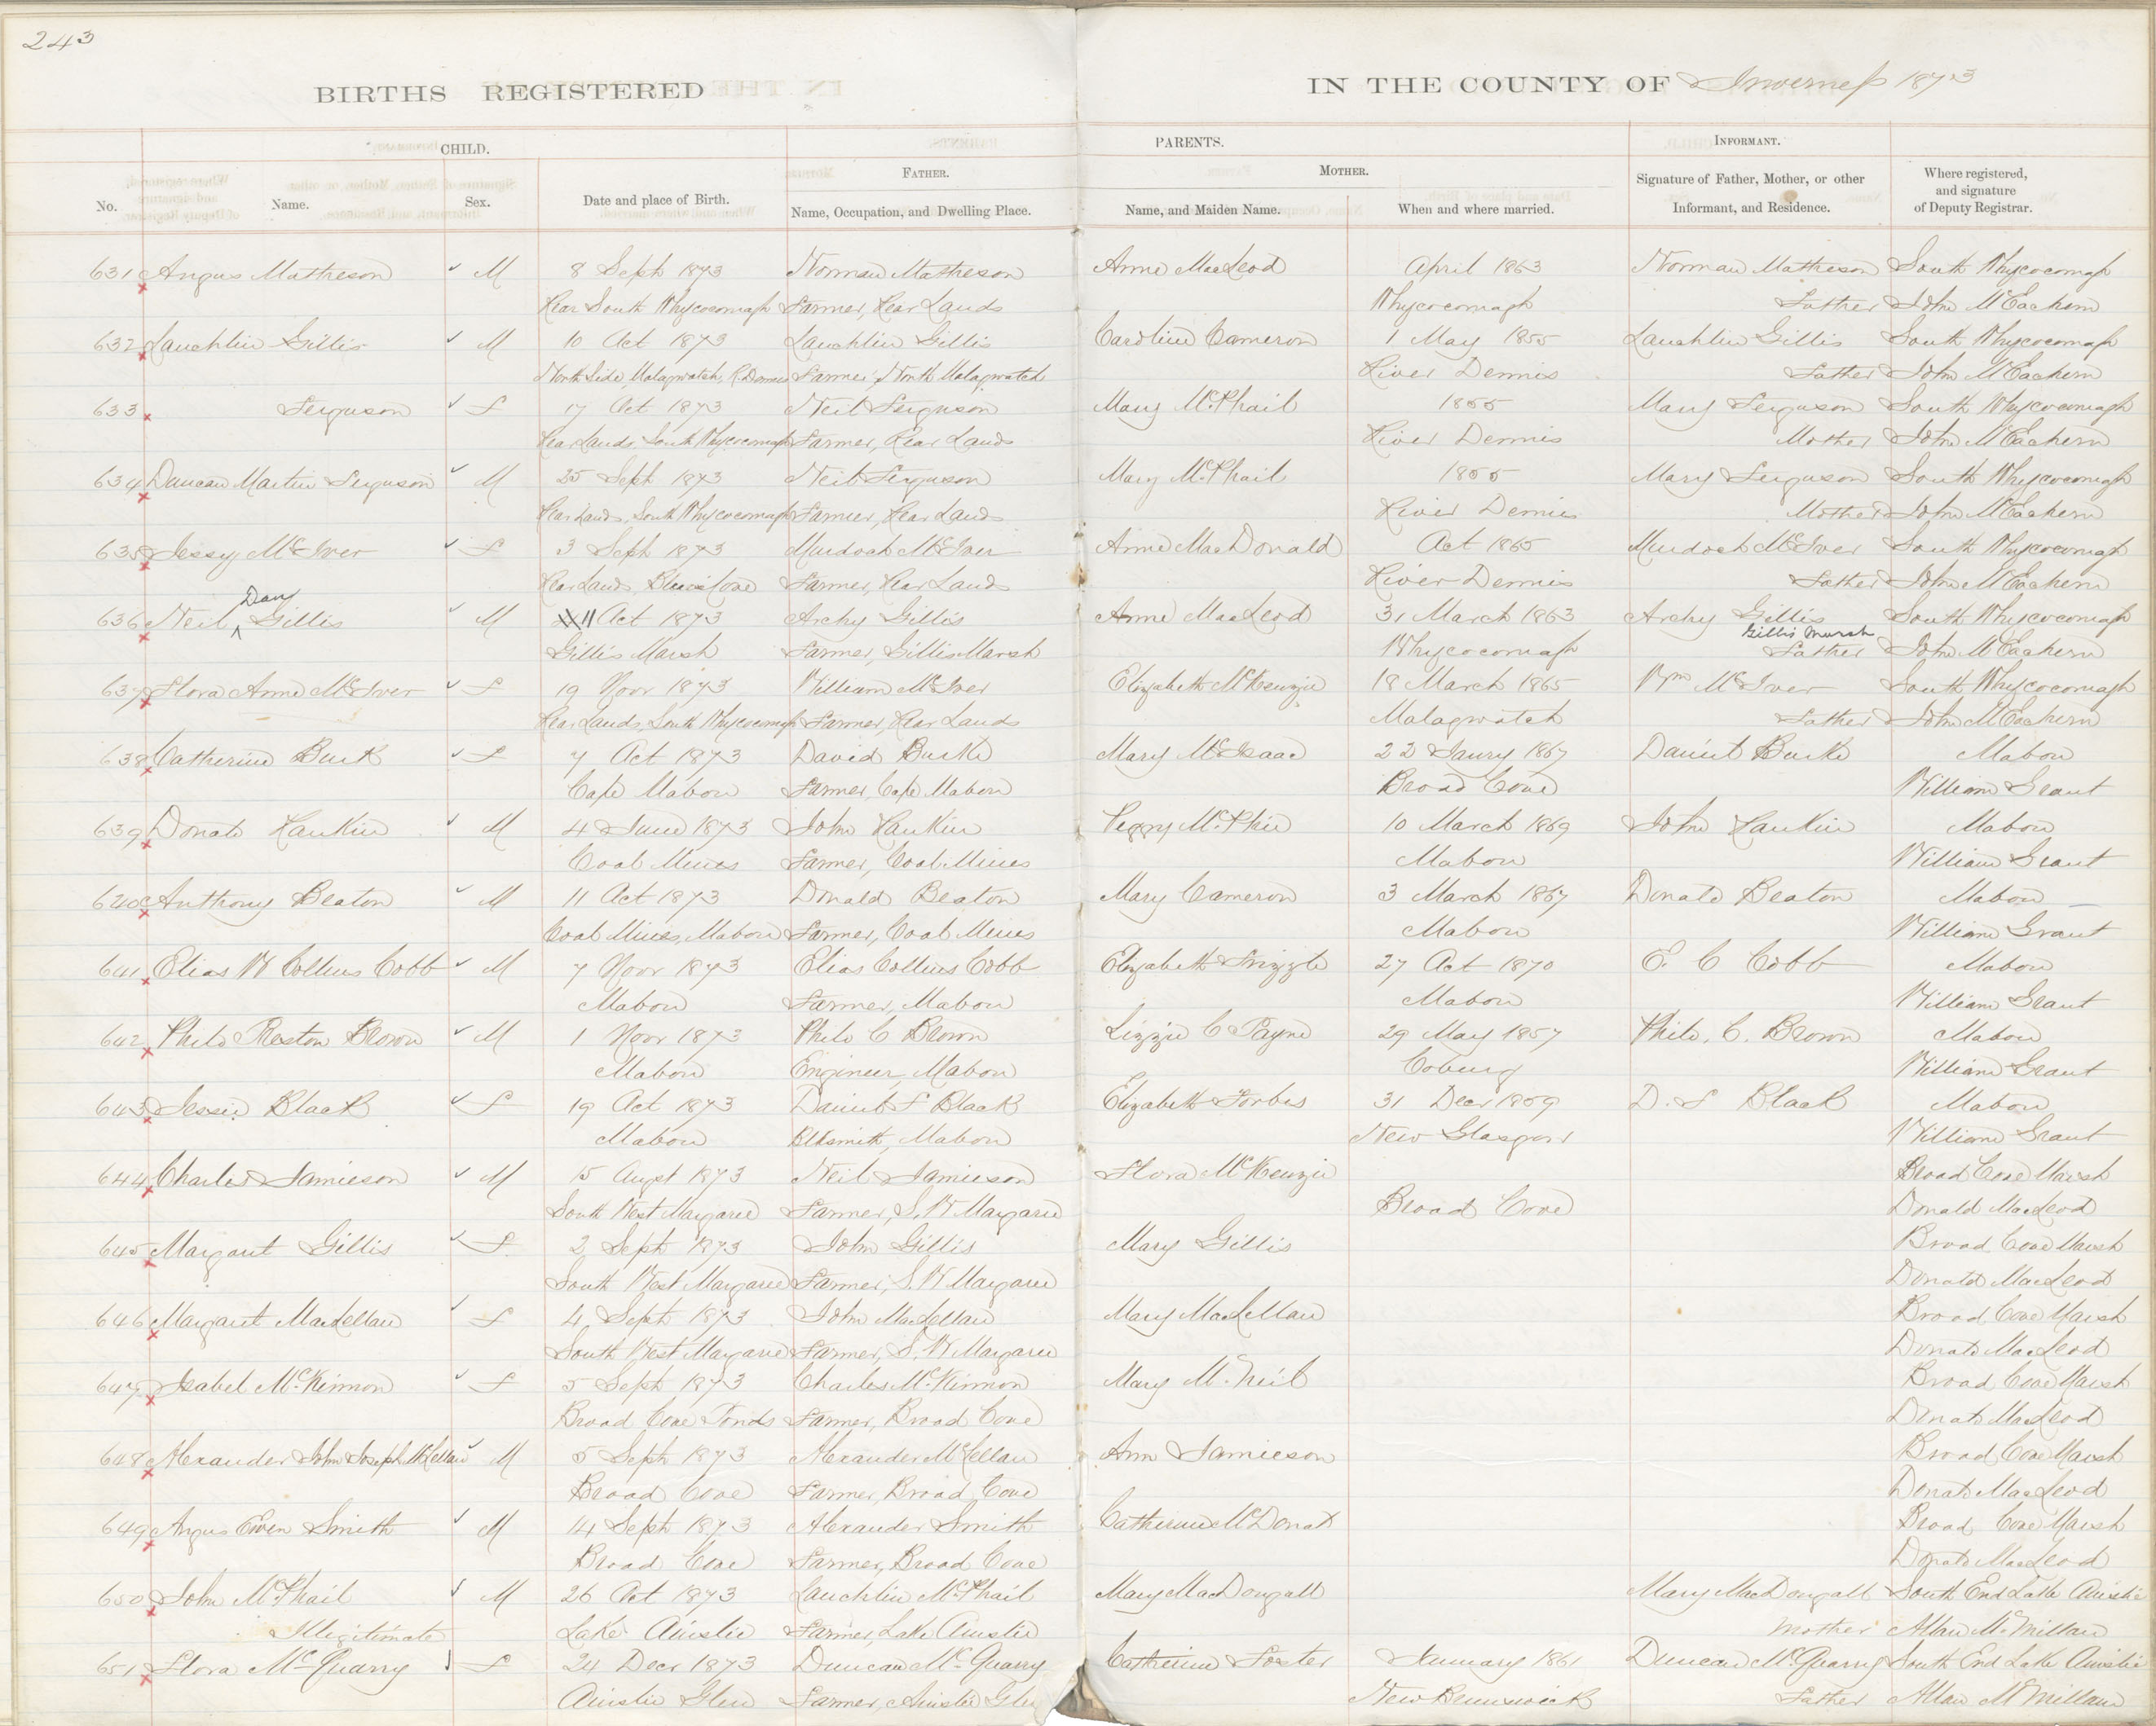 243
BIRTHS REGISTERED IN THE COUNTY OF Inverness 1873
CHILD. PARENTS. INFORMANT.
FATHER. MOTHER.
No. Name. Sex. Date and place of Birth. Name, Occupation, and Dwelling Place. Name, and Maiden Name. When and where married. Signature of Father, Mother, or other Informant, and Residence. Where registered, and signature of Deputy Registrar.
631 Angus Matheson M 8 Sept 1873 Norman Matheson Anne MacLeod April 1863 Norman Matheson South Whycocomagh
Rear South Whycocomagh Farmer, Rear Lands Whycocomagh Father John McEachern
632 Lauchlin Gillis M 10 Oct 1873 Lauchlin Gillis Caroline Cameron 1 May 1855 Lauchlin Gillis South Whycocomagh
North Side, Malagwatch, R. Dennis Farmer, North Malagwatch River Dennis Father John McEachern
633 Ferguson F 17 Oct 1873 Neil Ferguson Mary McPhail 1855 Mary Ferguson South Whycocomagh
Rear Lands, South Whycocomagh Farmer, Rear Lands River Dennis Mother John McEachern
634 Duncan Martin Ferguson M 25 Sept 1873 Neil Ferguson Mary McPhail 1855 Mary Ferguson South Whycocomagh
Rear Lands, South Whycocomagh Farmer, Rear Lands River Dennis Mother John McEachern
635 Jessy McIver F 3 Sept 1873 Murdoch McIver Anne MacDonald Oct 1865 Murdoch McIver South Whycocomagh
Rear Lands, Cove Farmer, Rear Lands River Dennis Father John McEachern
Dan
636 Neil ^ Gillis M 11 Oct 1873 Archy Gillis Anne MacLeod 31 March 1863 Archy Gillis South Whycocomagh
Gillis Marsh
Gillis Marsh Farmer, Gillis Marsh Whycocomagh Father John McEachern
637 Flora Anne McIver F 19 Novr 1873 William McIver Elizabeth McKenzie 18 March 1865 Wm McIver South Whycocomagh
Rear Lands, South Whycocomagh Farmer, Rear Lands Malagwatch Father John McEachern
638 Catherine Burk F 7 Oct 1873 David Burke Mary McIsaac 22 Janry 1867 Daniel Burke Mabou
Cape Mabou Farmer, Cape Mabou Broad Cove William Grant
639 Donald Rankin M 4 June 1873 John Rankin Peggy McPhie 10 March 1869 John Rankin Mabou
Coal Mines Farmer, Coal Mines Mabou William Grant
640 Anthony Beaton M 11 Oct 1873 Donald Beaton Mary Cameron 3 March 1867 Donald Beaton Mabou
Coal Mines, Mabou Farmer, Coal Mines Mabou William Grant
641 Elias W Collins Cobb M 7 Novr 1873 Elias Collins Cobb Elizabeth Frizzle 27 Oct 1870 E. C Cobb Mabou
Mabou Farmer, Mabou Mabou William Grant
642 Philo Preston Brown M 1 Novr 1873 Philo C Brown Lizzie C Payne 29 May 1857 Philo. C. Brown Mabou
Mabou Engineer, Mabou Coburg William Grant
643 Jessie Black F 19 Oct 1873 Daniel F Black Elizabeth Forbes 31 Decr 1859 D. F Black Mabou
Mabou Blksmith, Mabou New Glasgow William Grant
644 Charles Jamieson M 15 Augst 1873 Neil Jamieson Flora McKenzie Broad Cove Marsh
South West Margaree Farmer, S. W Margaree Broad Cove Donald MacLeod
645 Margaret Gillis F 2 Sept 1873 John Gillis Mary Gillis Broad Cove Marsh
South West Margaree Farmer, S. W Margaree Donald MacLeod
646 Margaret MacLellan F 4 Sept 1873 John MacLellan Mary MacLellan Broad Cove Marsh
South West Margaree Farmer, S. W Margaree Donald MacLeod
647 Isabel McKinnon F 5 Sept 1873 Charles McKinnon Mary McNeil Broad Cove Marsh
Broad Cove Ponds Farmer, Broad Cove Donald MacLeod
648 Alexander John Joseph McLellan M 5 Sept 1873 Alexander McLellan Ann Jamieson Broad Cove Marsh
Broad Cove Farmer, Broad Cove Donald MacLeod
649 Angus Ewen Smith M 14 Sept 1873 Alexander Smith Catherine McDonald Broad Cove Marsh
Broad Cove Farmer, Broad Cove Donald MacLeod
650 John McPhail M 26 Oct 1873 Lauchlin McPhail Mary MacDougall Mary MacDougall South End Lake Ainslie
Illegitimate Lake Ainslie Farmer, Lake Ainslie Mother Allan McMillan
651 Flora McQuarry F 24 Decr 1873 Duncan McQuarry Catherine Foster January 1861 Duncan McQuarry South End Lake Ainslie
Ainslie Glen Farmer, Ainslie Glen New Brunswick Father Allan McMillan